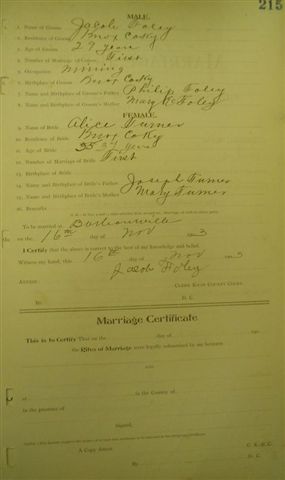 215
MALE.
1. Name of Groom Jacob Foley
2. Residence of Groom Knox Co Ky
3. Age of Groom 29 years
4. Number of Marriage of Groom First
5. Occupation Mining
6. Birthplace of Groom Knox Co Ky
7. Name and Birthplace of Groom's Father Philip Foley
8. Name and Birthplace of Groom's Mother Mary C Foley
FEMALE.
9. Name of Bride Alice Turner
10. Residence of Bride Knox Co Ky
11. Age of Bride years
12. Number of Marriage of Bride First
13. Birthplace of Bride
14. Name and Birthplace of Bride's Father Joseph Turner
15. Name and Birthplace of Bride's Mother Mary Turner
16. Remarks
To be married at Barbourville
on the 16th day of Nov 3
I Certify that the above is correct to the best of my knowledge and belief.
Witness my hand, this 16th day of Nov 3
Jacob Foley
Attest:
Clerk Knox County Court.
By D. C.
Marriage Certificate
This is to Certify That on the day of 190
the Rites of Marriage were legally solemnized by me between
and
at in the County of
in the presence of
Signed,
A Copy Attest: C. K. C. C.
By D. C.